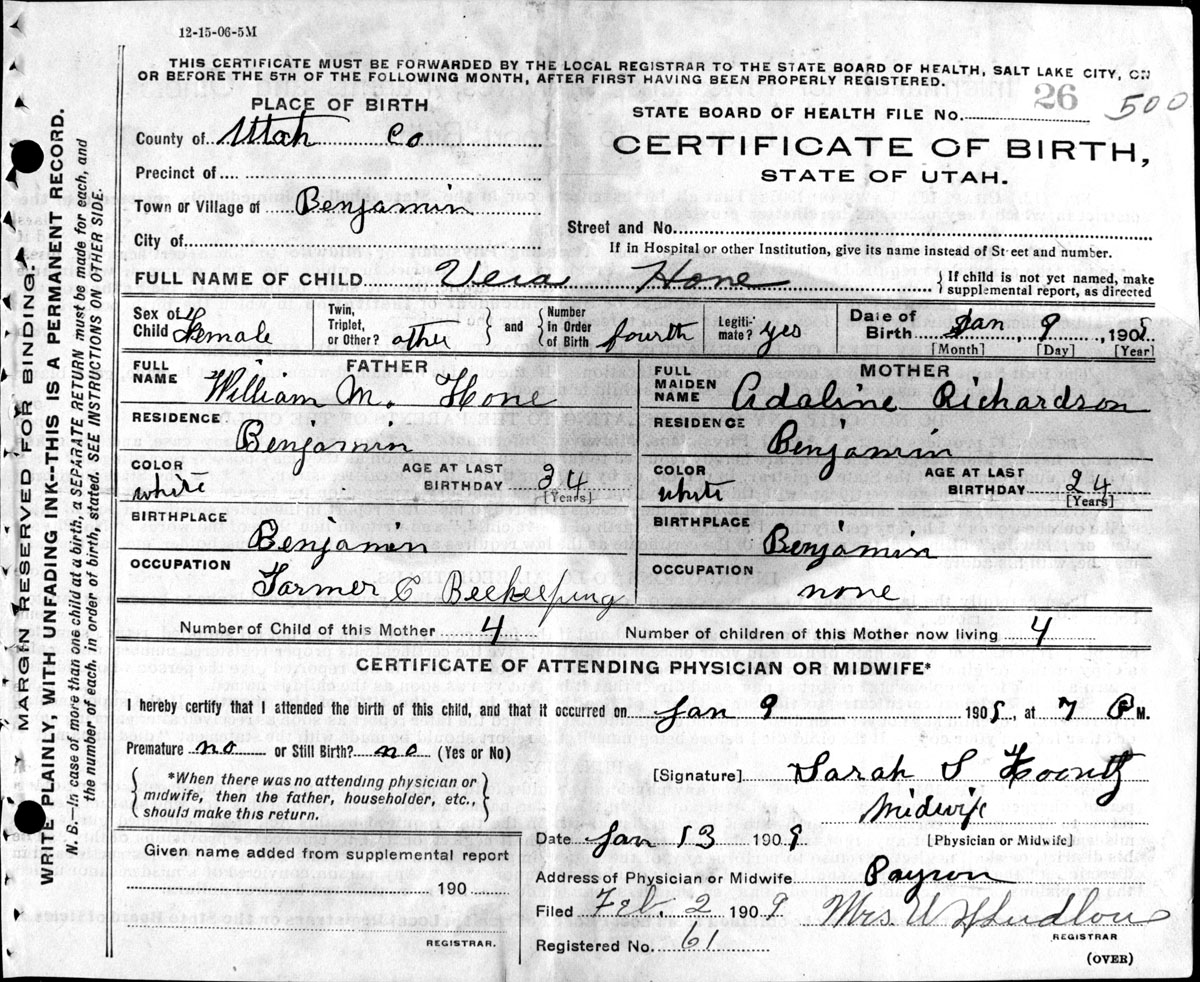 12-15-06-5M
THIS CERTIFICATE MUST BE FORWARDED BY THE LOCAL REGISTRAR TO THE STATE BOARD OF HEALTH, SALT LAKE CITY, ON
OR BEFORE THE 5TH OF THE FOLLOWING MONTH, AFTER FIRST HAVING BEEN PROPERLY REGISTERED.
MARGIN RESERVED FOR BINDING
WRITE PLAINLY, WITH UNFADING INK--THIS IS A PERMANENT RECORD.
N. B.—In case of more than one child at a birth, a SEPARATE RETURN must be made for each, and
the number of each, in order of birth, stated. SEE INSTRUCTIONS ON OTHER SIDE.
PLACE OF BIRTH
County of Utah Co
Precinct of
Town or Village of Benjamin
City of
STATE BOARD OF HEALTH FILE No. 26 500
CERTIFICATE OF BIRTH,
STATE OF UTAH.
Street and No.
If in Hospital or other Institution, give its name instead of Street and number.
FULL NAME OF CHILD Vera Hone { If child is not yet named, make
supplemental report, as directed
Sex of Child Female
Twin, Triplet, or Other? other } and { Number in Order of Birth fourth
Legitimate? yes
Date of Birth Jan 9, 190
[Month] [Day] [Year]
FATHER
FULL NAME William M. Hone
RESIDENCE Benjamin
COLOR white
AGE AT LAST BIRTHDAY 34
[Years]
BIRTHPLACE Benjamin
OCCUPATION Farmer & Beekeeping
MOTHER
FULL MAIDEN NAME Adaline Richardson
RESIDENCE Benjamin
COLOR white
AGE AT LAST BIRTHDAY 24
[Years]
BIRTHPLACE Benjamin
OCCUPATION none
Number of Child of this Mother 4
Number of children of this Mother now living 4
CERTIFICATE OF ATTENDING PHYSICIAN OR MIDWIFE*
I hereby certify that I attended the birth of this child, and that it occurred on Jan 9 190 at 7 P M.
Premature no or Still Birth? no (Yes or No)
{ *When there was no attending physician or
midwife, then the father, householder, etc.,
should make this return. }
[Signature] Sarah S Koontz
Midwife
[Physician or Midwife]
Given name added from supplemental report
190
REGISTRAR.
Date Jan 13 1909
Address of Physician or Midwife Payson
Filed Feb. 2 1909 Mrs. Ludlow
REGISTRAR
Registered No. 61
(OVER)